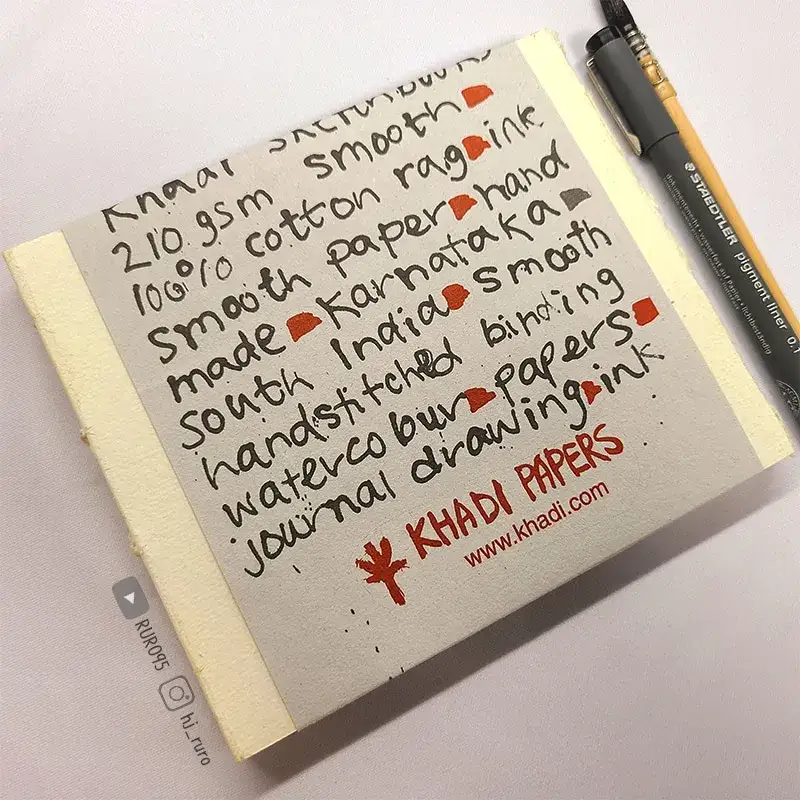 Khadi sketchbooks
210 gsm smooth
100% cotton rag ink
smooth paper hand
made Karnataka
South India smooth
handstitched binding
watercolour papers
journal drawing ink
KHADI PAPERS
www.khadi.com
STAEDTLER pigment liner 0.1
RURO95
hj_ruro